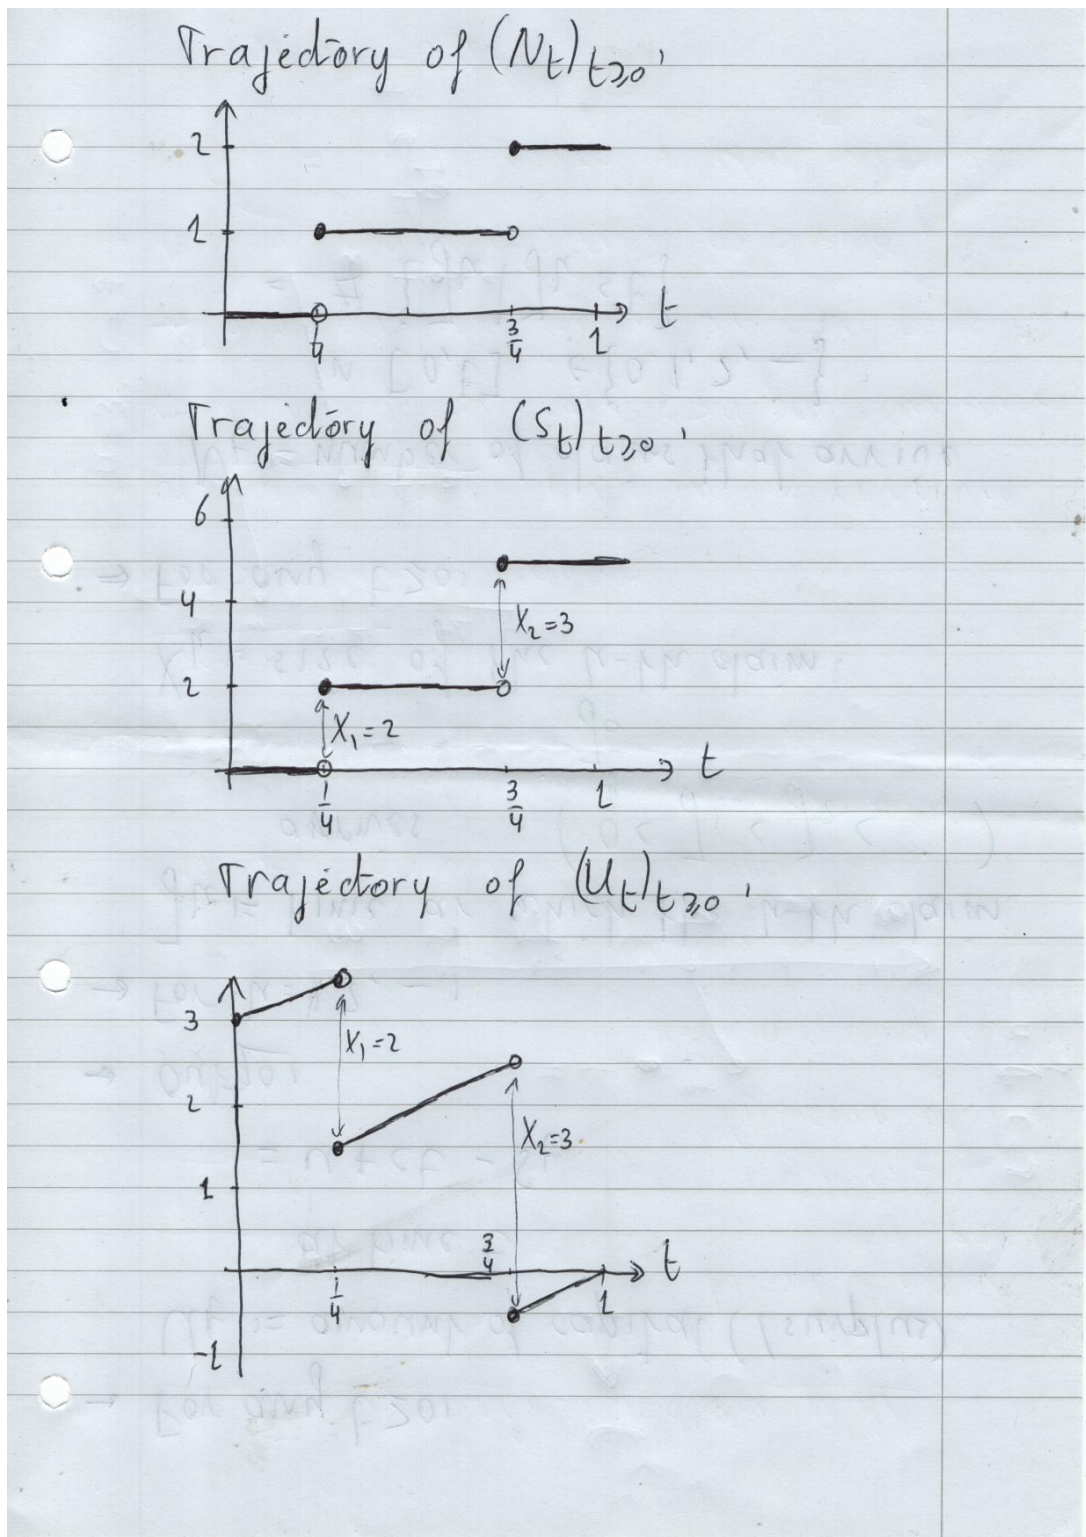 Trajectory of (N_t)_{t≥0}.
2
1
t
1/4
3/4
1
Trajectory of (S_t)_{t≥0}.
6
4
X_2=3
2
X_1=2
t
1/4
3/4
1
Trajectory of (U_t)_{t≥0}.
3
X_1=2
2
X_2=3
1
3/4
t
1/4
1
-1